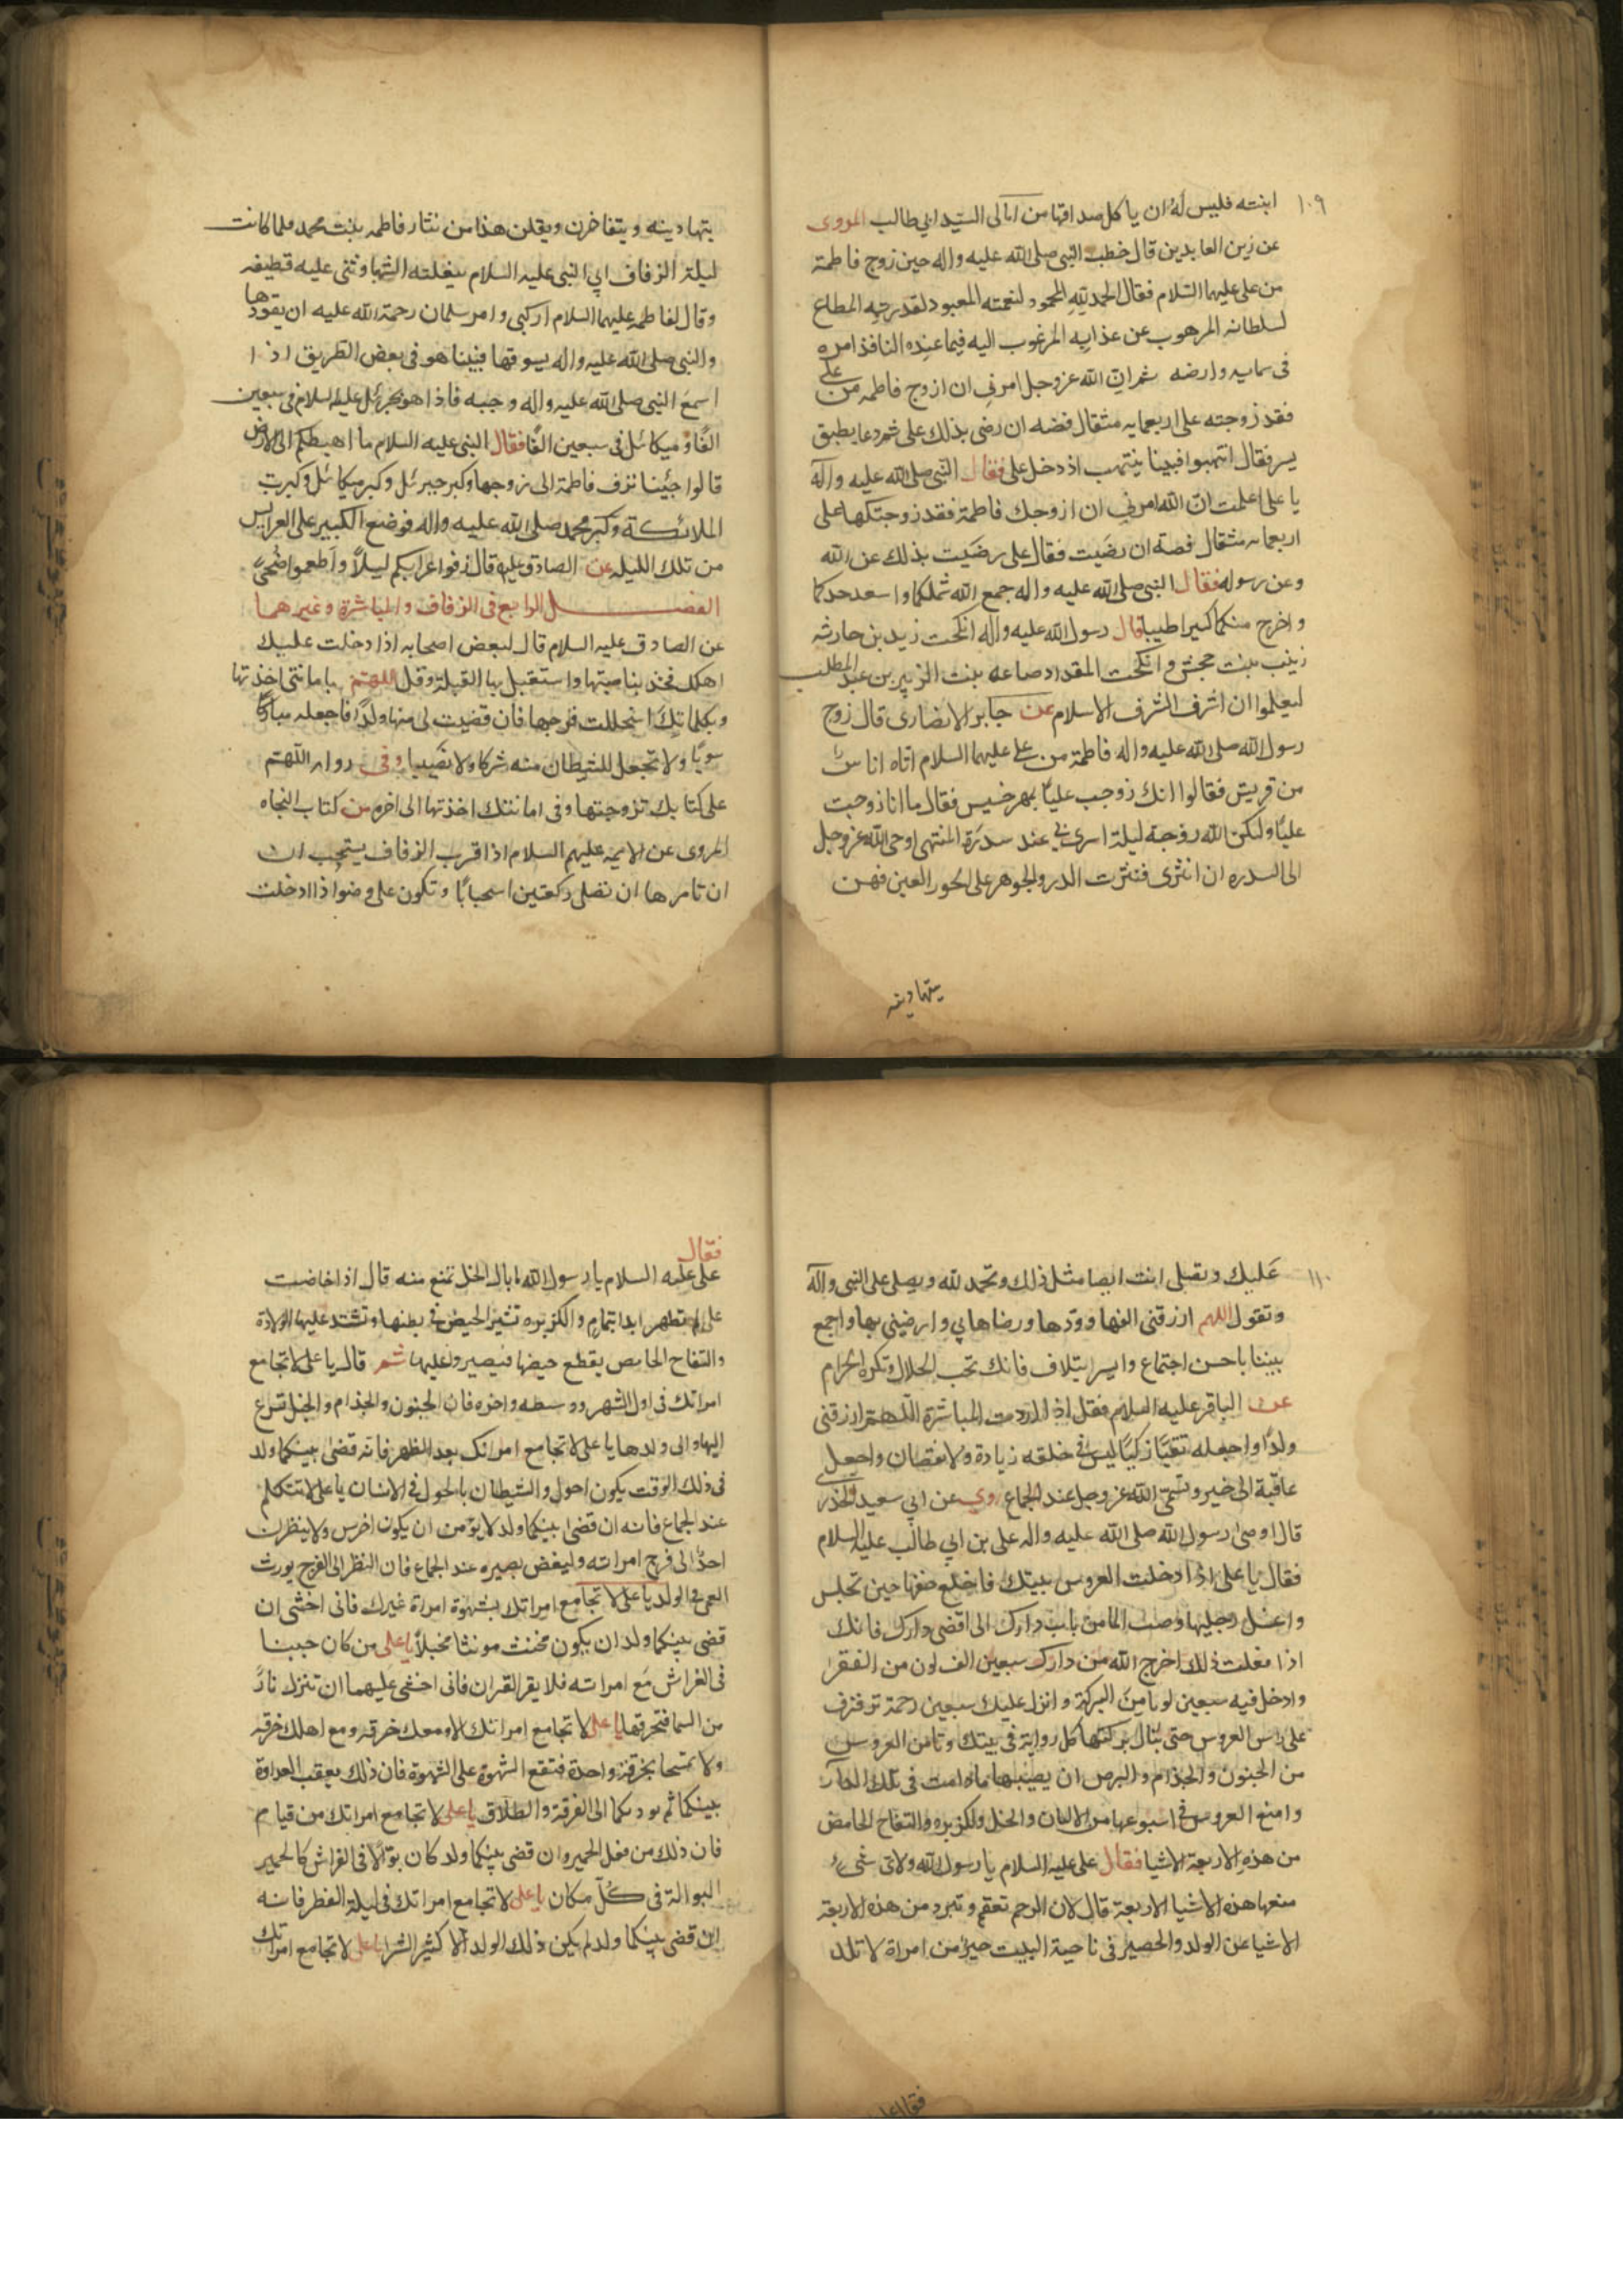 ١٠٩
ابنته فليس له ان ياكل صداقها من امالى السيد ابي طالب المروى
عن زين العابدين قال خطب النبى صلى الله عليه واله حين زوج فاطمة
من على عليهما السلام فقال الحمد لله المحمود لنعمته المعبود لقدرته المطاع
لسلطانه المرهوب عن عذابه المرغوب اليه فيما عنده النافذ امره
فى سمايه وارضه ثم ان الله عز وجل امرنى ان ازوج فاطمه من على
فقد زوجته على اربعمايه مثقال فضه ان رضى بذلك على ثم دعا بطبق
بسر فقال انتهبوا فبينا ينتهب اذ دخل على فقال النبى صلى الله عليه واله
يا على اعلمت ان الله امرنى ان ازوجك فاطمة فقد زوجتكها على
اربعمايه مثقال فضة ان رضيت فقال على رضيت بذلك عن الله
وعن رسوله فقال النبى صلى الله عليه واله جمع الله شملكما واسعد جدكما
واخرج منكما كثيرا طيبا قال رسول الله عليه واله انكحت زيد بن حارثه
زينب بنت جحش وانكحت المقداد ضباعه بنت الزبير بن عبد المطلب
ليعلموا ان اشرف الشرف الاسلام عن جابر الانصارى قال زوج
رسول الله صلى الله عليه واله فاطمة من على عليهما السلام اتاه اناس
من قريش فقالوا انك زوجت عليا بمهر خسيس فقال ما انا زوجت
عليا ولكن الله زوجه ليلة اسرى بى عند سدرة المنتهى اوحى الله عز وجل
الى السدره ان انثرى فنثرت الدر والجوهر على الحور العين فهن
يتهادينه
يتهادينه ويتفاخرن ويقلن هذا من نثار فاطمه بنت محمد فلما كانت
ليلة الزفاف اتى النبى عليه السلام ببغلته الشهبا وثنى عليه قطيفه
وقال لفاطمه عليهما السلام اركبى وامر سلمان رحمة الله عليه ان يقودها
والنبى صلى الله عليه واله يسوقها فبينا هو فى بعض الطريق اذ ا
اسمع النبى صلى الله عليه واله وجبه فاذا هو بجبرئل عليه السلام فى سبعين
الفا وميكائل فى سبعين الفا فقال النبى عليه السلام ما اهبطكم الى الارض
قالوا جئنا نزف فاطمة الى زوجها وكبر جبرئل وكبر ميكائل وكبرت
الملائكة وكبر محمد صلى الله عليه واله فوضع التكبير على العرايس
من تلك الليله عن الصادق عليه قال زفوا عرايسكم ليلا واطعموا ضحى
الفصل الرابع فى الزفاف والمباشرة وغيرهما
عن الصادق عليه السلام قال لبعض اصحابه اذا دخلت عليك
اهلك فخذ بناصيتها واستقبل بها القبلة وقل اللهم بامانتى اخذتها
وبكلماتك استحللت فرجها فان قضيت لى منها ولدا فاجعله مباركا
سويا ولا تجعل للشيطان منه شركا ولا نصيبا وفى روايه اللهم
على كتابك تزوجتها وفى امانتك اخذتها الى اخره من كتاب النجاه
المروى عن الايمه عليهم السلام اذا قرب الزفاف يستحب ان
ان تامرها ان تصلى ركعتين استحبابا وتكون على وضوا اذا ادخلت
١١٠
عليك وتصلى انت ايضا مثل ذلك وتحمد لله ويصلى على النبى واله
وتقول اللهم ارزقنى الفها وودها ورضاها بي وارضينى بها واجمع
بيننا باحسن اجتماع وايسر ايتلاف فانك تحب الحلال وتكره الحرام
عن الباقر عليه السلام فقل اذا اردت المباشرة اللهم ارزقنى
ولدا واجعله تقيا زكيا ليس فى خلقه زيادة ولا نقصان واجعل
عاقبة الى خير وتسمى الله عز وجل عند الجماع روى عن ابي سعيد الخدرى
قال اوصى رسول الله صلى الله عليه واله على بن ابي طالب عليه السلام
فقال يا على اذا ادخلت العروس بيتك فاخلع خفها حين تجلس
واغسل رجليها وصب الما من باب دارك الى اقصى دارك فانك
اذا فعلت ذلك اخرج الله من دارك سبعين الف لون من الفقر
وادخل فيه سبعين لونا من البركة وانزل عليك سبعين رحمة ترفرف
على راس العروس حتى تنال بركتها كل رواية فى بيتك وتامن العروس
من الجنون والجذام والبرص ان يصيبها مادامت فى تلك الدار
وامنع العروس فى اسبوعها من الالبان والخل والكزبره والتفاح الحامض
من هذه الاربعة الاشيا فقال على عليه السلام يا رسول الله ولاى شىء
منعها هذه الاشيا الاربعة قال لان الرحم تعقم وتبرد من هذه الاربعة
الاشيا عن الولد والحصير فى ناحية البيت خير من امراة لا تلد
فقال
فقال
على عليه السلام يا رسول الله ما بال الخل تمنع منه قال اذا حاضت
على لم تطهر ابدا بتمام والكزبره تثير الحيض فى بطنها وتشتد عليها الولادة
والتفاح الحامض يقطع حيضها فيصير وا عليها ثم قال يا على لا تجامع
امراتك فى اول الشهر ووسطه واخره فان الجنون والجذام والخبل تسرع
اليها والى ولدها يا على لا تجامع امراتك بعد الظهر فانه قضى بينكما ولد
فى ذلك الوقت يكون احول والشيطان بالحول فى الانسان يا على لا تتكلم
عند الجماع فانه ان قضى بينكما ولد لا يؤمن ان يكون اخرس ولا ينظرن
احد الى فرج امراته وليغض بصره عند الجماع فان النظر الى الفرج يورث
العمى فى الولد يا على لا تجامع امراتك بشهوة امراة غيرك فانى اخشى ان
قضى بينكما ولد ان يكون مخنث مونثا مخبلا يا على من كان جنبا
فى الفراش مع امراته فلا يقر القران فانى اخشى عليهما ان تنزل نار
من السما فتحرقها يا على لا تجامع امراتك الا ومعك خرقه ومع اهلك خرقه
ولا تمسحا بخرقة واحدة فتقع الشهوة على الشهوة فان ذلك يعقب العداوة
بينكما ثم يودىكما الى الفرقة والطلاق يا على لا تجامع امراتك من قيام
فان ذلك من فعل الحمير وان قضى بينكما ولد كان بوالا فى الفراش كالحمير
البوالة فى كل مكان يا على لا تجامع امراتك فى ليلة الفطر فانه
ان قضى بينكما ولد لم يكن ذلك الولد الا كثير الشر يا على لا تجامع امراتك